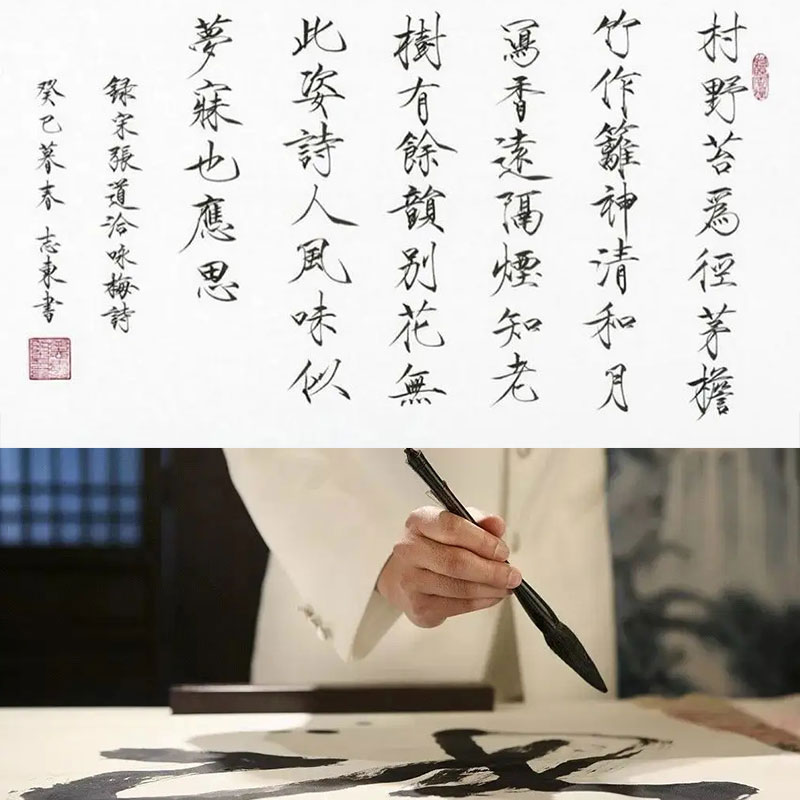 村野苔爲徑茅檐
竹作籬神清和月
寫香遠隔煙知老
樹有餘韻別花無
此姿詩人風味似
夢寐也應思
録宋張道洽咏梅詩
癸巳暮春 志東書